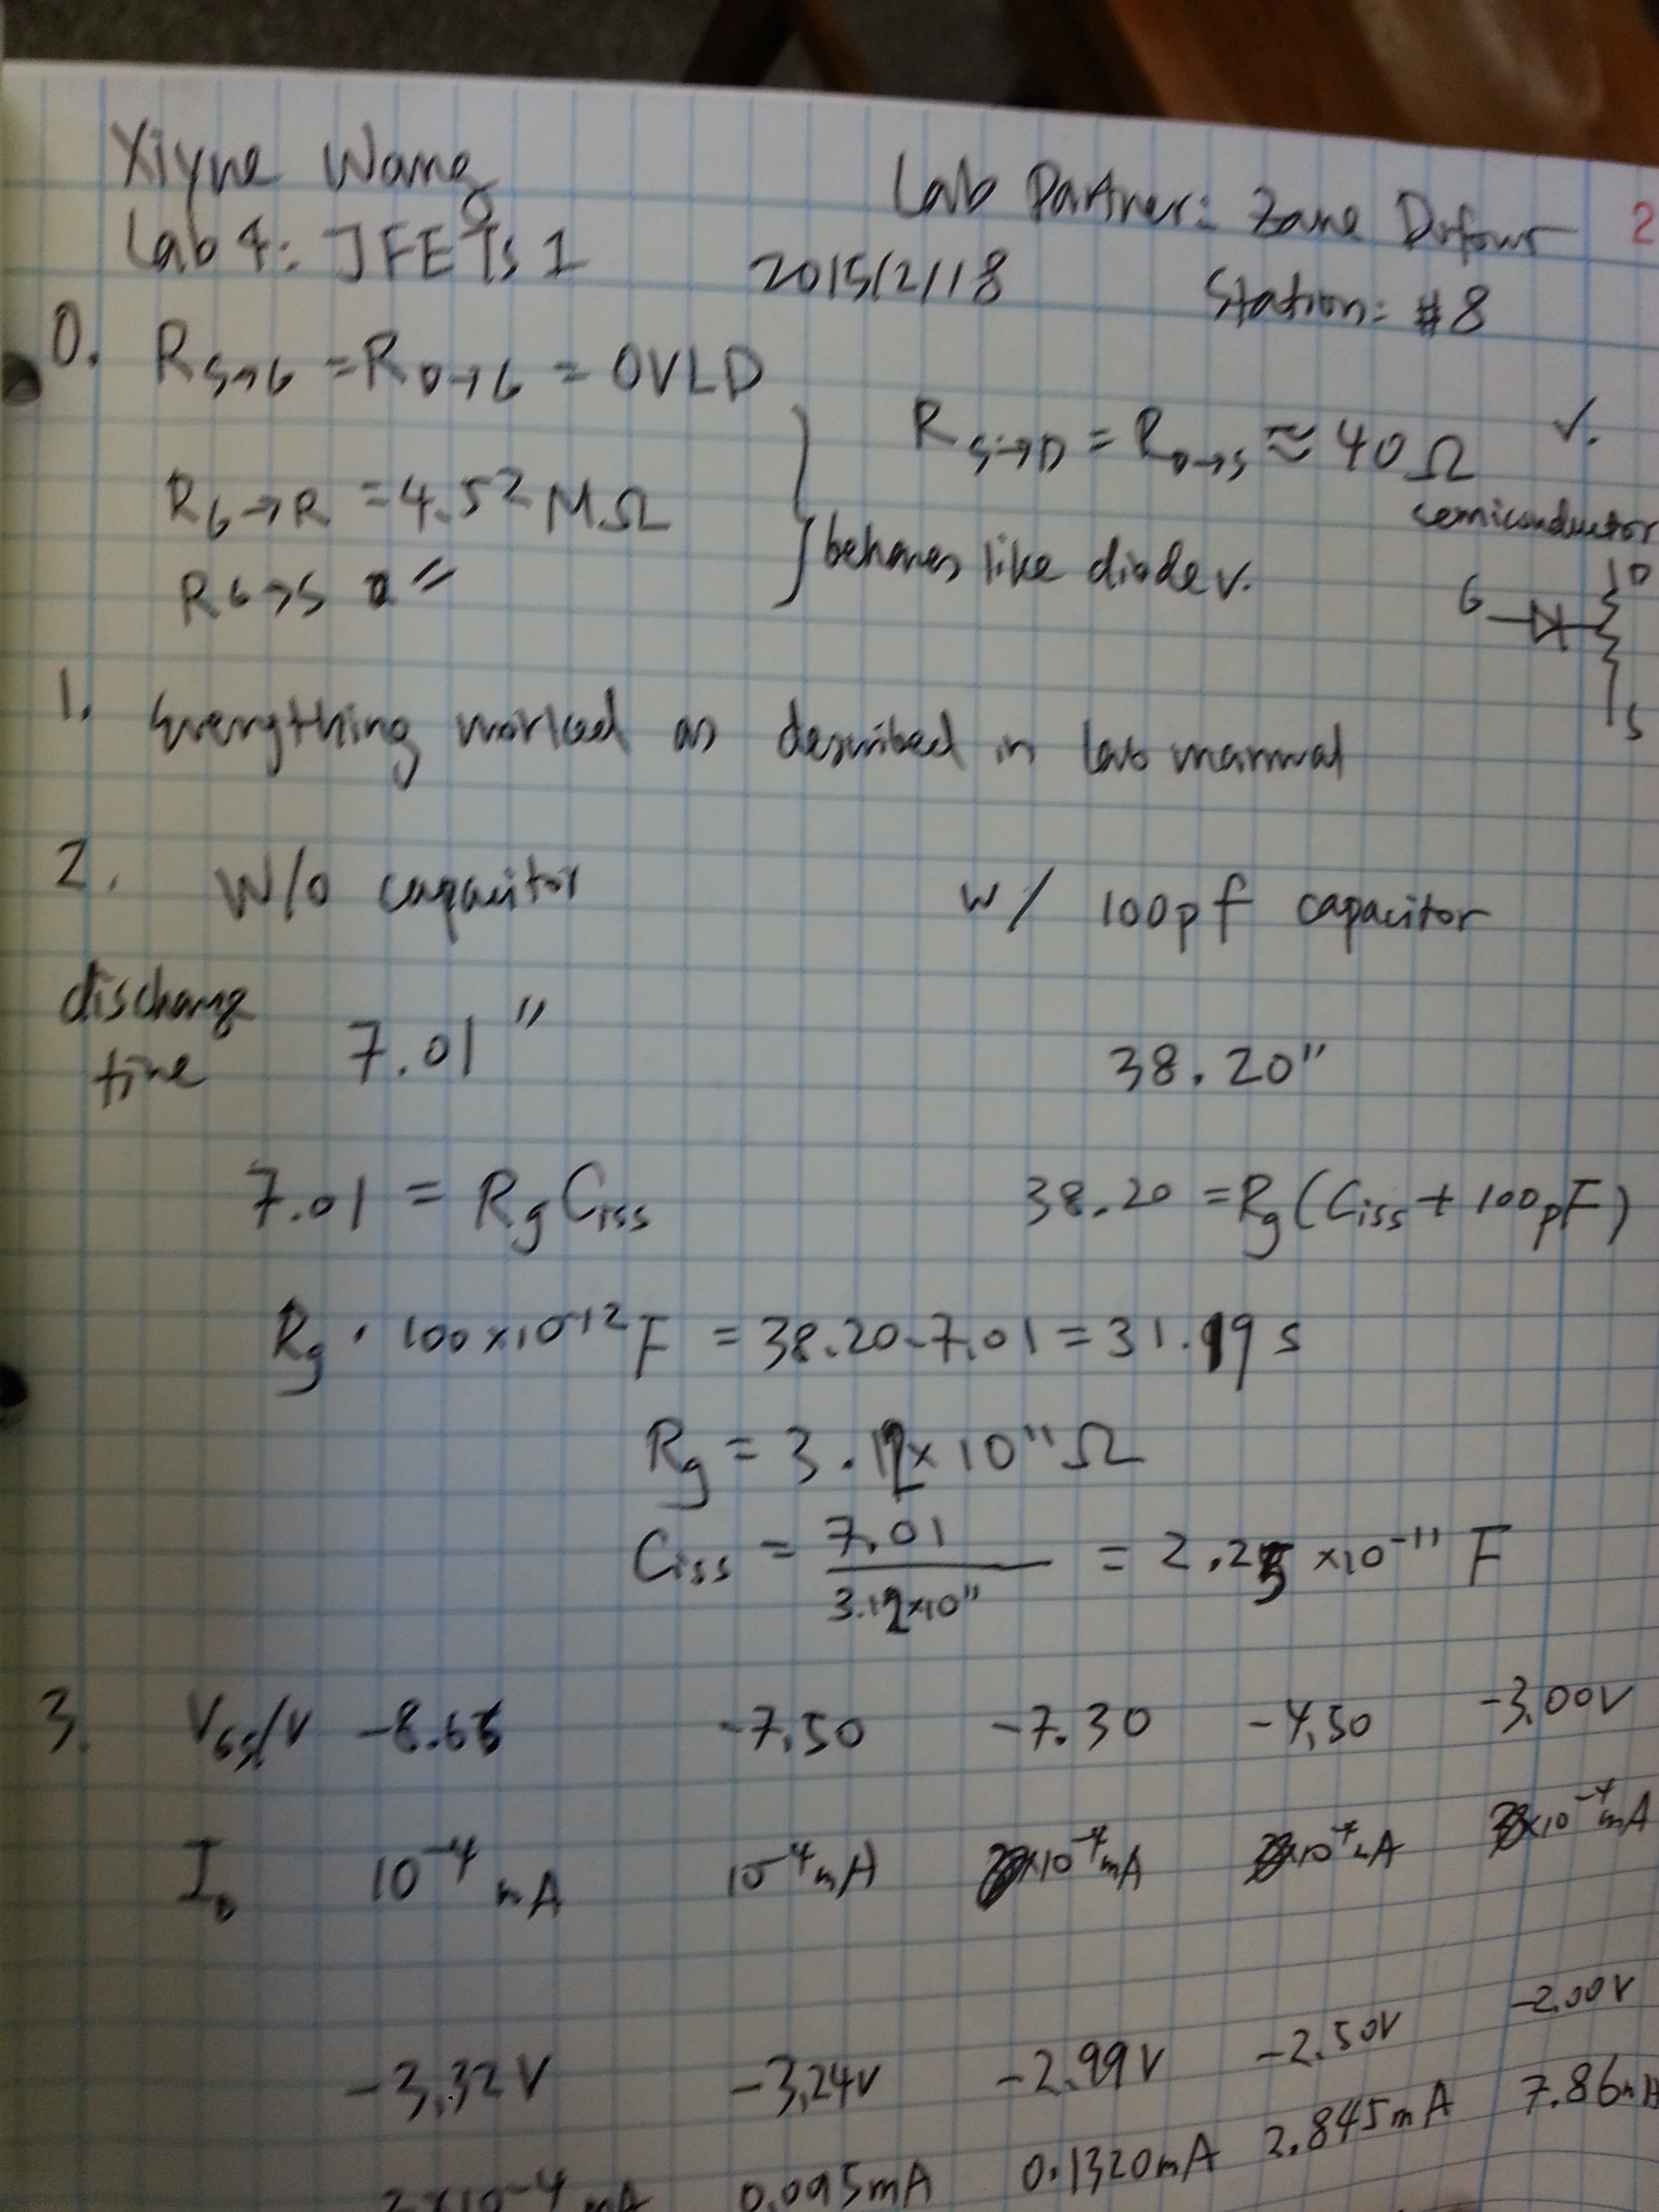 Xiyue Wang
Lab Partner: Zane Dufour 2
Lab 4: JFETs 1 2015/2/18 Station: #8
0. R S→G = R D→G = OVLD
R S→D = R D→S ≈ 40Ω ✓.
R G→R = 4.52 MΩ
semiconductor
R G→S = "
} behaves like diode ✓.
G D
S
1. Everything worked as described in lab manual
2. W/o capacitor w/ 100pf capacitor
discharge
time 7.01" 38.20"
7.01 = Rg Ciss 38.20 = Rg (Ciss + 100pF)
Rg · 100×10^-12 F = 38.20-7.01 = 31.19 s
Rg = 3.12×10^11 Ω
Ciss = 7.01 / 3.12×10^11 = 2.25 ×10^-11 F
3. VGS/V -8.65 -7.50 -7.30 -4.50 -3.00V
ID 10^-4 mA 10^-4 mA ×10^-4 mA ×10^-4 mA ×10^-4 mA
-3.32V -3.24V -2.99V -2.50V -2.00V
2×10^-4 mA 0.095mA 0.1320mA 2.845mA 7.86mA